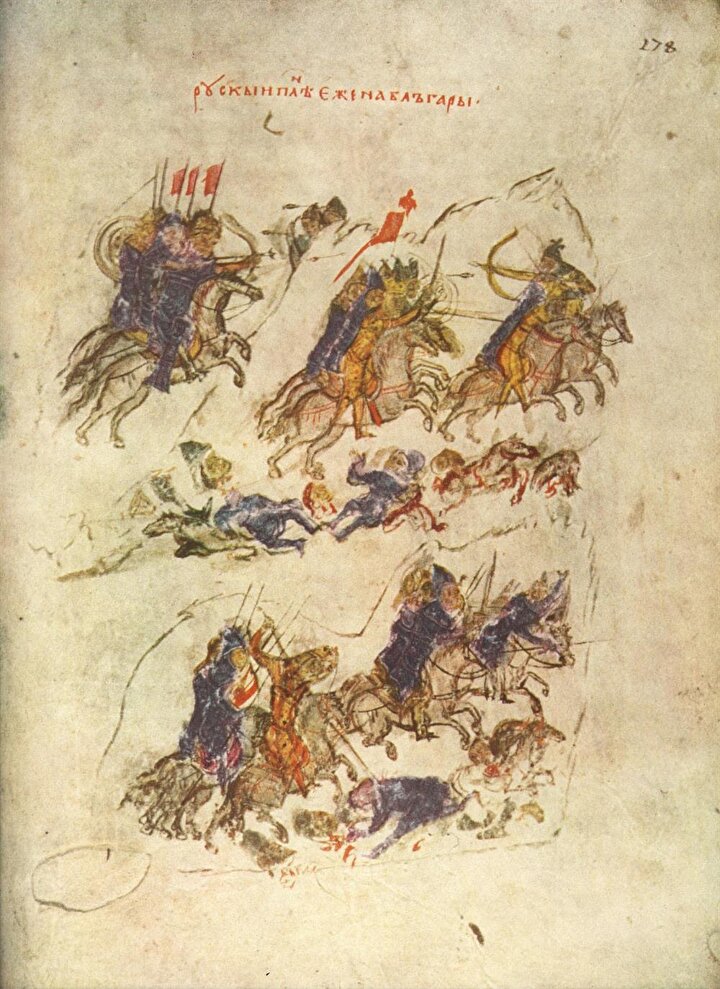 278
рѹскыи плѣн еже на блъгары·